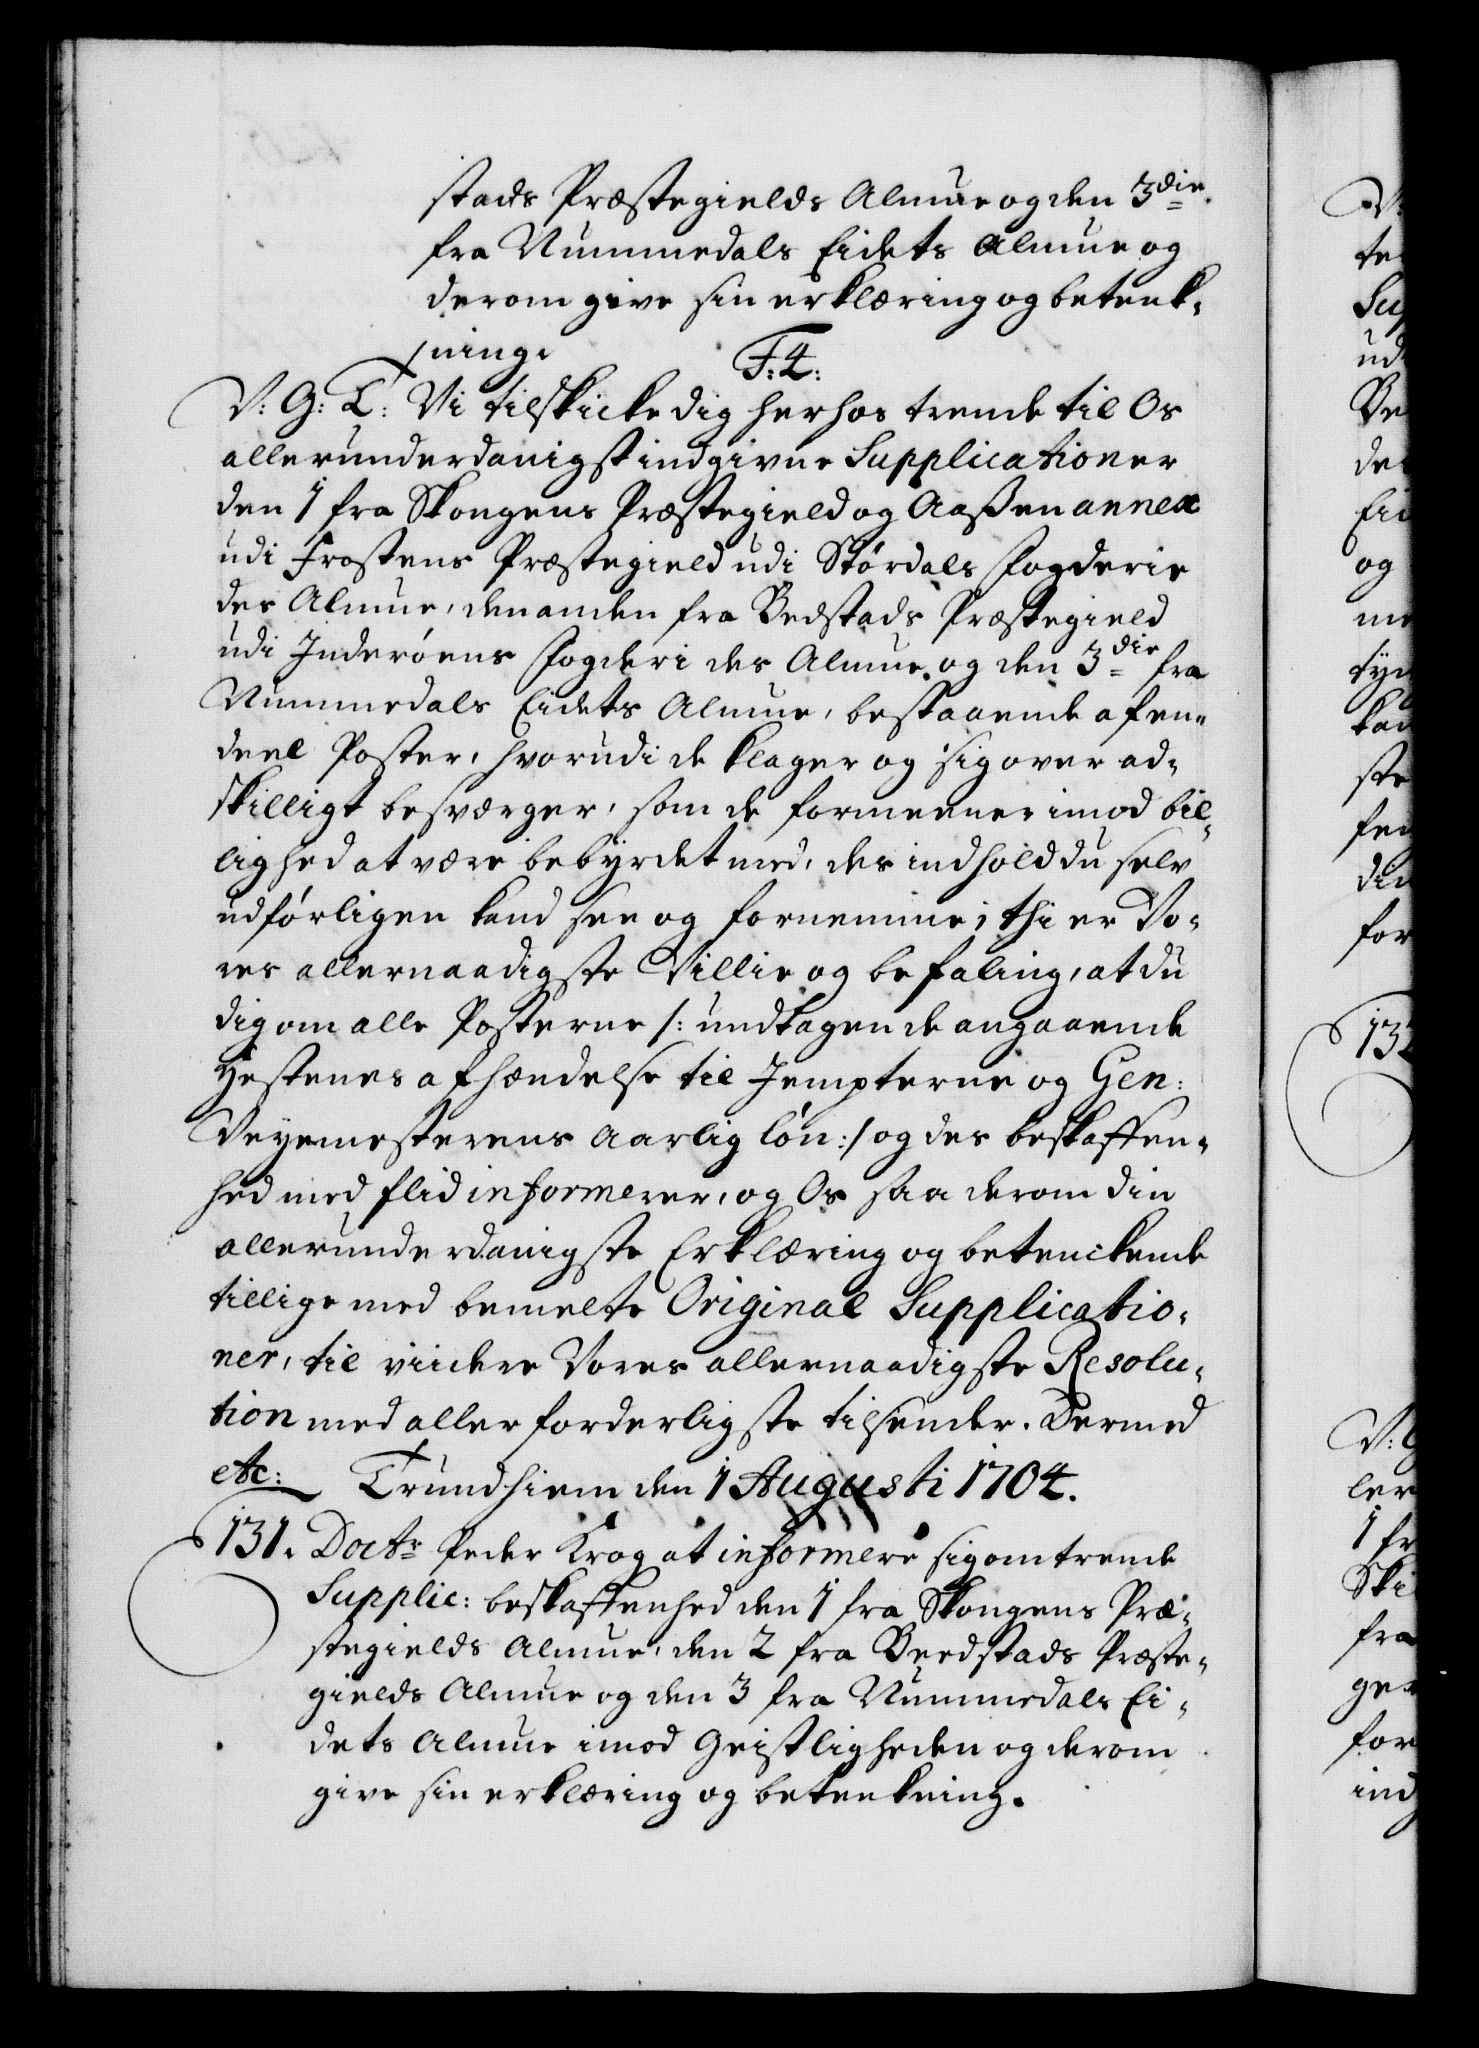 stads Præstegields Almue og den 3die
fra Nummedals Eidets Almue og
derom give sin erklæring og betenk-
ning.
F: 4:
V: G: T: Vi tilskicke dig herhos trende til Os
allerunderdanigst indgivne Supplicationer
den 1 fra Skongens Præstegield og Aaßen annex
udi Frostens Præstegield udi Stördals Fogderie
des Almue, den anden fra Bedstads Præstegield
udi Inderöens Fogderi des Almue, og den 3die fra
Nummedals Eidets Almue, bestaaende af en-
deel Poster, hvorudi de klager og sig over ad-
skilligt besværger, som de formeener imod bil-
lighed at være bebyrdet med, des indhold du selv
udförligen kand see og fornemme; thi er Vo-
res allernaadigste Villie og befaling, at du
dig om alle Posterne /: undtagen de angaaende
Hestenes afhændelse til Jempterne og Gen:
Veyemesterens aarlig lön :/ og des beskaffen-
hed med flid informerer, og Os saa derom din
allerunderdanigste Erklæring og betenckende
tillige med bemelte Original Supplicatio-
ner, til viidere Vores allernaadigste Resolu-
tion med allerforderligste tilsender. Dermed
etc: Trundhiem den 1 Augusti 1704.
131. Doctr Peder Krog at informere sig om trende
Supplic: beskaffenhed den 1 fra Skongens Præ-
stegields Almue, den 2 fra Beedstads Præste-
gields Almue og den 3 fra Nummedals Ei-
dets Almue imod Geistligheden og derom
give sin erklæring og betenkning.